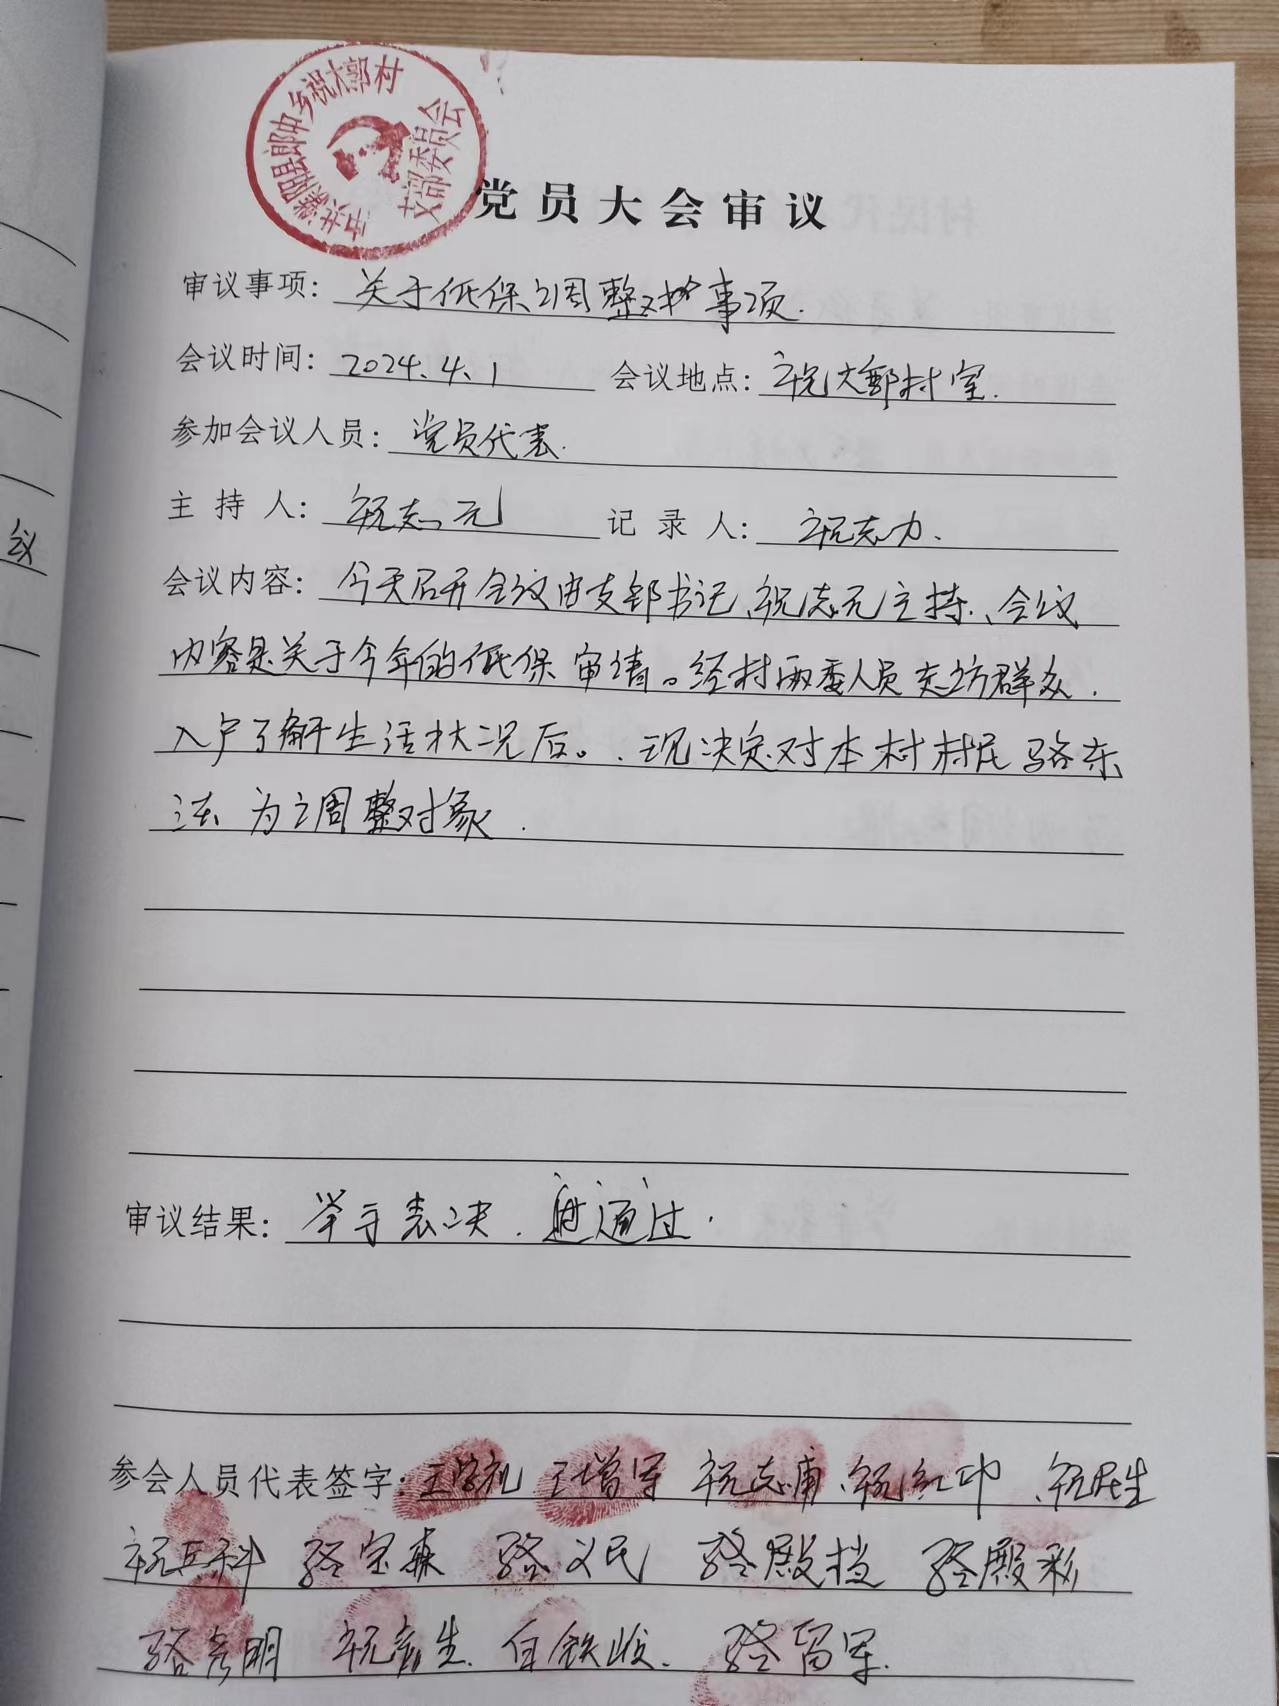 中共濮阳县郎中乡祝大郭村
支部委员会
党员大会审议
审议事项：关于低保调整对象事项.
会议时间：2024.4.1 会议地点：祝大郭村室.
参加会议人员：党员代表.
主持人：祝志元 记录人：祝志力.
会议内容：今天召开会议由支部书记、祝志元主持、会议
内容是关于今年的低保审请。经村两委人员走访群众.
入户了解生活状况后。现决定对本村村民骆东
法 为调整对象.
审议结果：举手表决. 通过.
参会人员代表签字：王学礼 王增军 祝志甫 祝红印 祝民生
祝兵科 骆宝森 骆义民 骆殿挡 骆殿彩
骆秀明 祝 生 白铁 骆留军.
会议